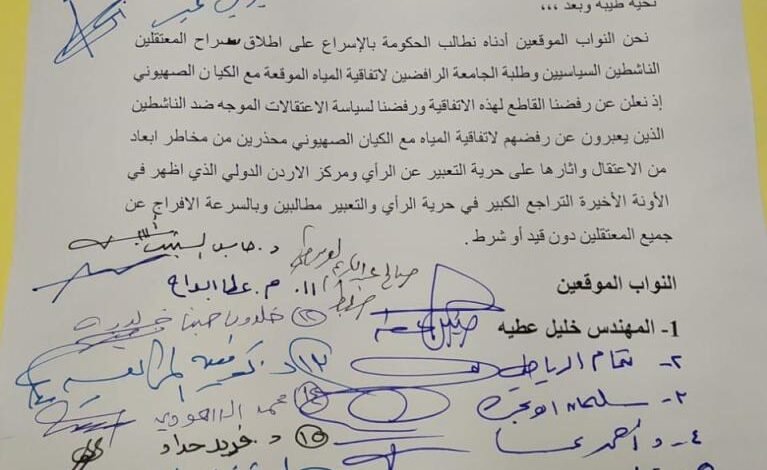 تحية طيبة وبعد ،،،
نحن النواب الموقعين أدناه نطالب الحكومة بالإسراع على اطلاق سراح المعتقلين
الناشطين السياسيين وطلبة الجامعة الرافضين لاتفاقية المياه الموقعة مع الكيان الصهيوني
إذ نعلن عن رفضنا القاطع لهذه الاتفاقية ورفضنا لسياسة الاعتقالات الموجه ضد الناشطين
الذين يعبرون عن رفضهم لاتفاقية المياه مع الكيان الصهيوني محذرين من مخاطر ابعاد
من الاعتقال واثارها على حرية التعبير عن الرأي ومركز الاردن الدولي الذي اظهر في
الأونة الأخيرة التراجع الكبير في حرية الرأي والتعبير مطالبين وبالسرعة الافراج عن
جميع المعتقلين دون قيد أو شرط .
النواب الموقعين
1- المهندس خليل عطيه
٢- تمام الرياطي
٣- سليمان ابو
٤- د احمد
١١. م. عطا ابداح
١٢ خلدون حينا
١٣ د.
١٤ محمد
١٥ د. فريد حداد